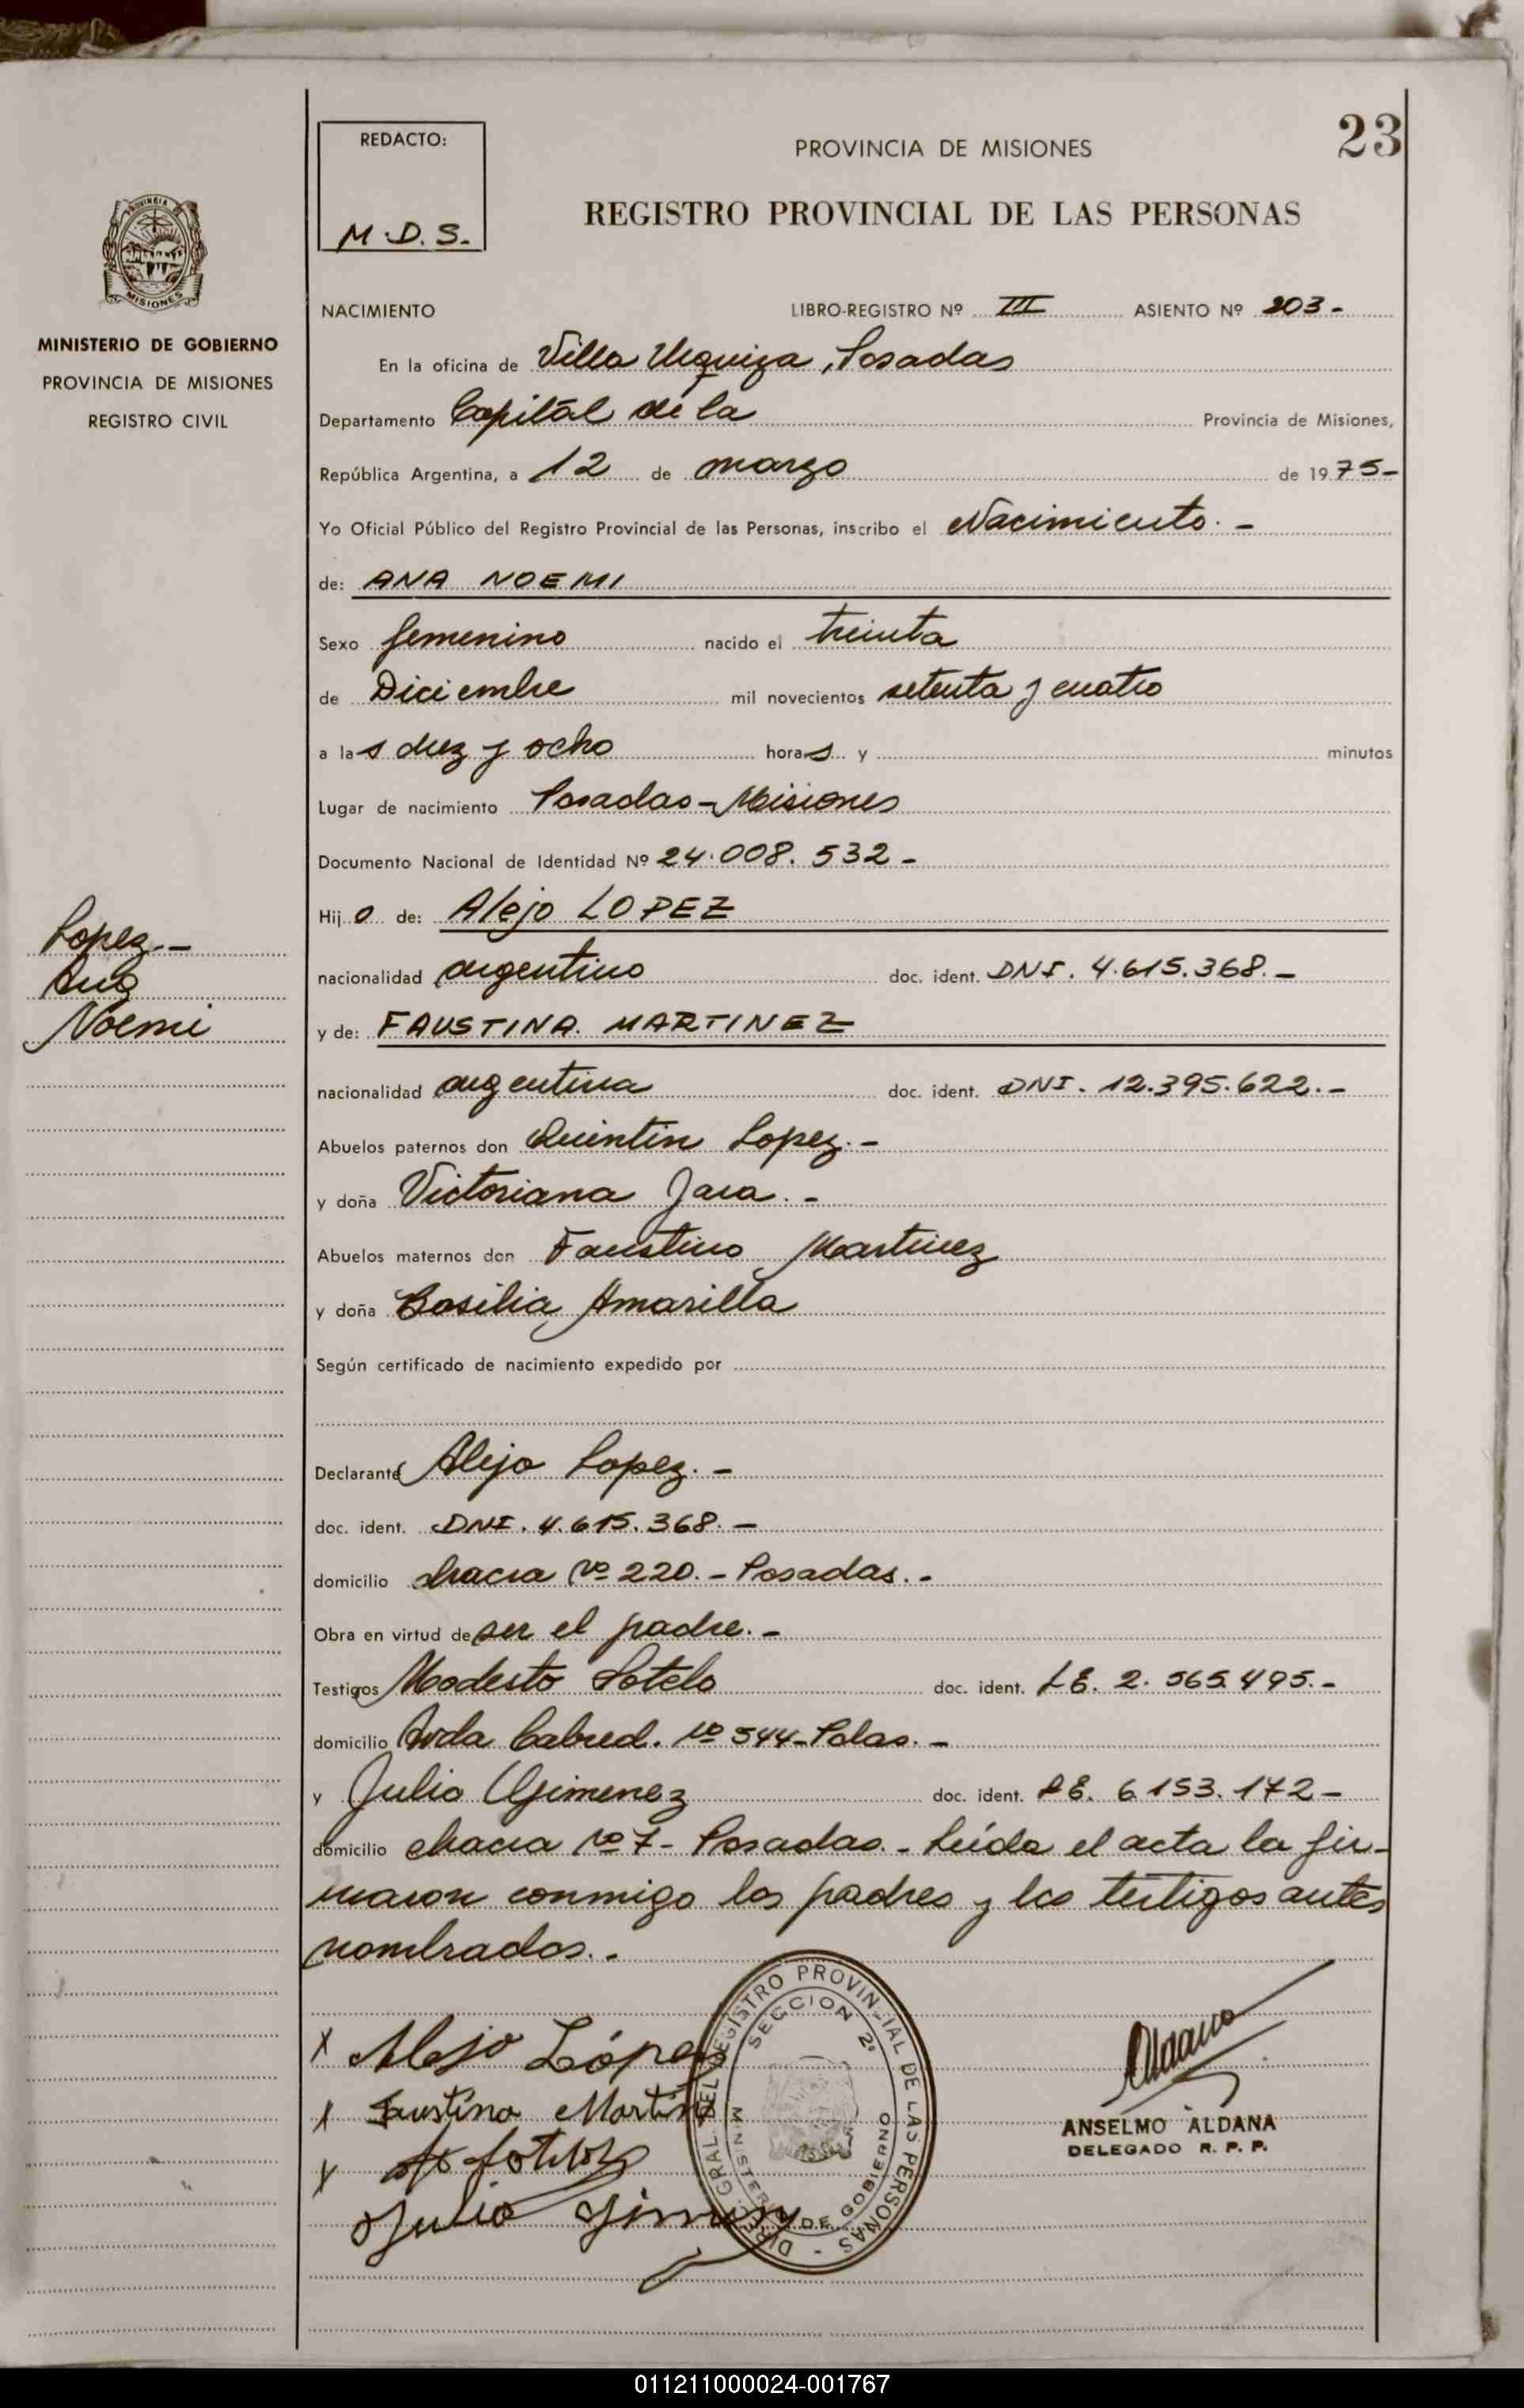 23
REDACTO:
M.D.S.
PROVINCIA DE MISIONES
REGISTRO PROVINCIAL DE LAS PERSONAS
MISIONES
MINISTERIO DE GOBIERNO
PROVINCIA DE MISIONES
REGISTRO CIVIL
NACIMIENTO LIBRO-REGISTRO Nº III ASIENTO Nº 203-
En la oficina de Villa Urquiza, Posadas
Departamento Capital de la Provincia de Misiones,
República Argentina, a 12 de marzo de 1975-
Yo Oficial Público del Registro Provincial de las Personas, inscribo el Nacimiento.-
de: ANA NOEMI
Sexo femenino nacido el treinta
de Diciembre mil novecientos setenta y cuatro
a las diez y ocho horas y minutos
Lugar de nacimiento Posadas-Misiones
Documento Nacional de Identidad Nº 24.008.532-
Hijo de: Alejo LOPEZ
nacionalidad argentino doc. ident. DNI. 4.615.368.-
y de: FAUSTINA MARTINEZ
nacionalidad argentina doc. ident. DNI. 12.395.622.-
Lopez.-
Ana
Noemi
Abuelos paternos don Quintin Lopez.-
y doña Victoriana Jara.-
Abuelos maternos don Faustino Martinez
y doña Basilia Amarilla
Según certificado de nacimiento expedido por
Declarante Alejo Lopez.-
doc. ident. DNI. 4.615.368.-
domicilio chacra Nº 220.- Posadas.-
Obra en virtud de ser el padre.-
Testigos Modesto Sotelo doc. ident. LE. 2.565.495.-
domicilio Avda Cabred. Nº 544-Pdas.-
y Julio Gimenez doc. ident. LE. 6.153.172-
domicilio chacra Nº 7- Posadas.- Leída el acta la fir-
maron conmigo los padres y los testigos antes
nombrados.-
x Alejo López
x Faustina Martinez
x
Julio
DIREC. GRAL. DEL REGISTRO PROVINCIAL DE LAS PERSONAS -
SECCION 2ª
MINISTERIO DE GOBIERNO
ANSELMO ALDANA
DELEGADO R. P. P.
011211000024-001767